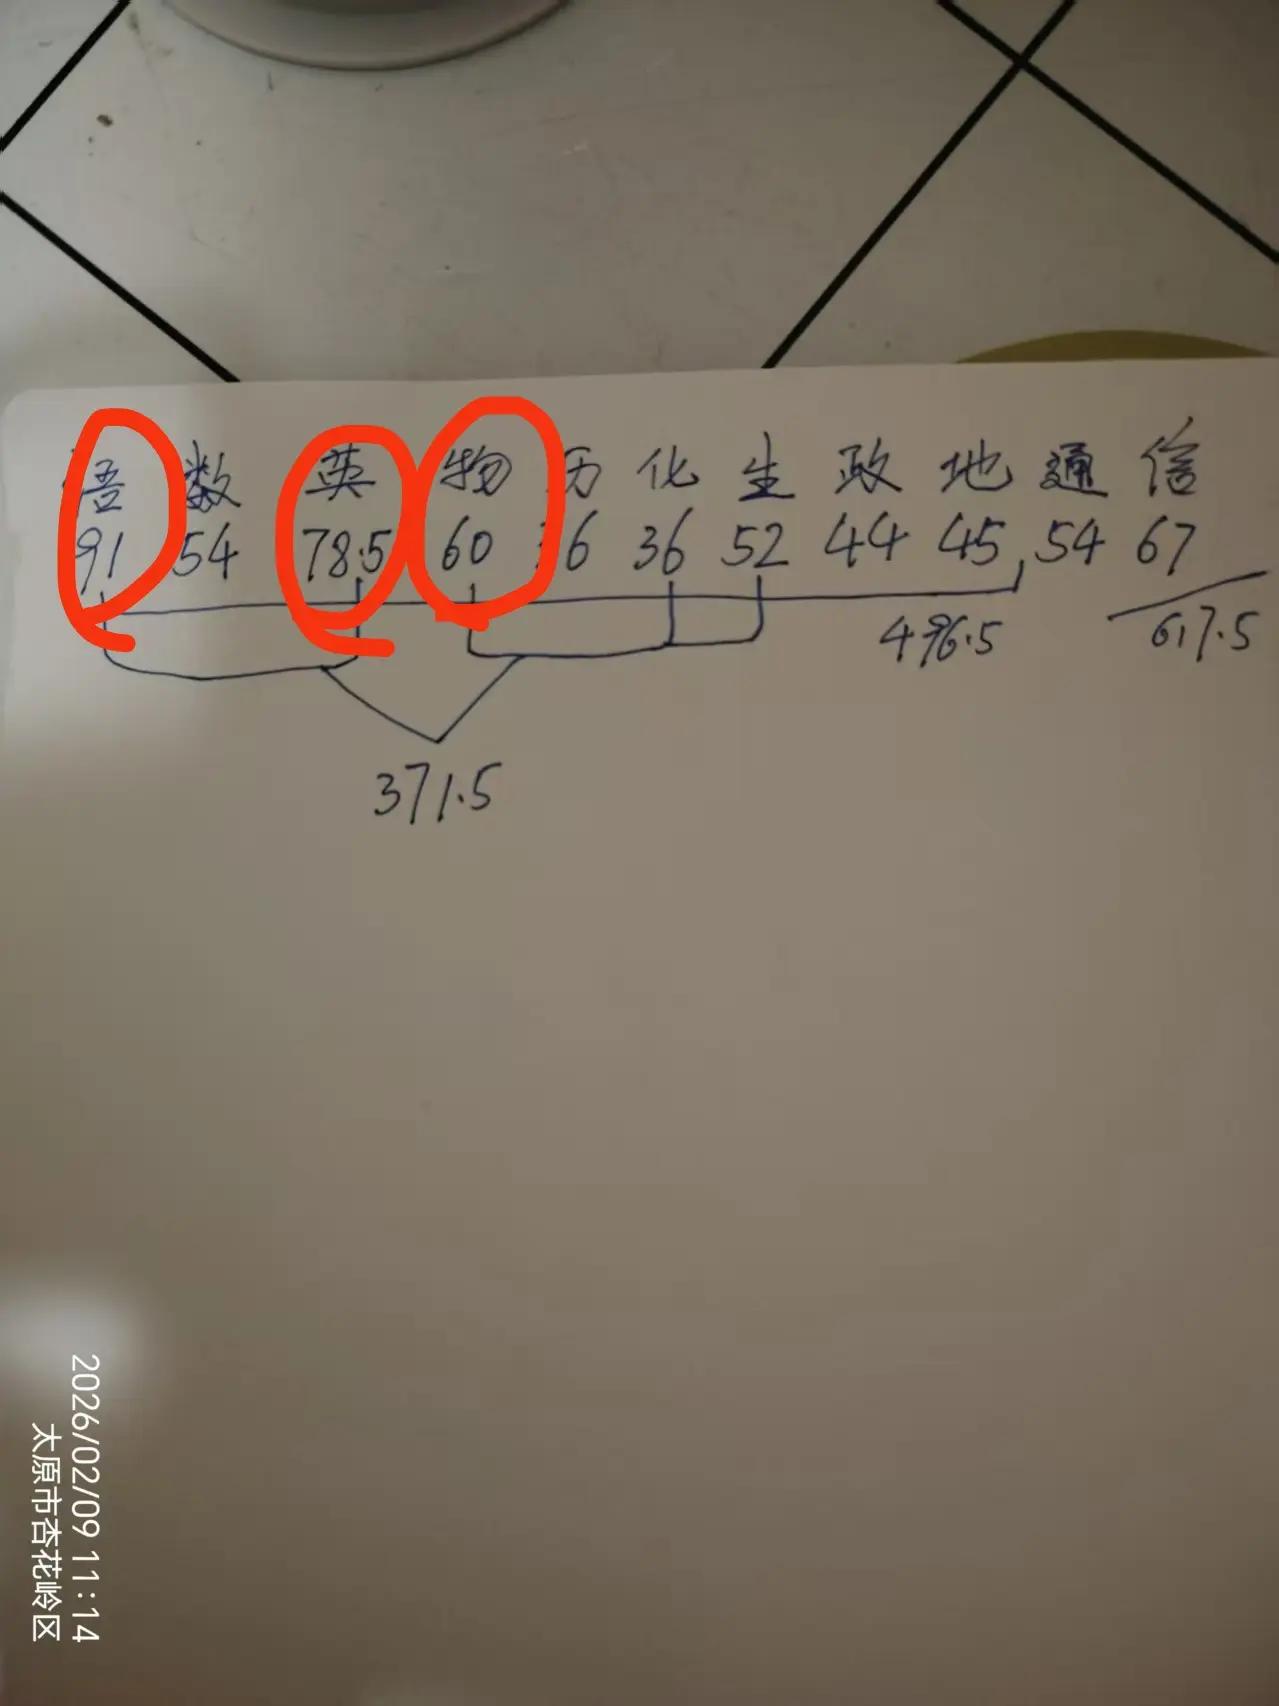 语 数 英 物 历 化 生 政 地 通 信
91 54 78.5 60 36 36 52 44 45 54 67
496.5 617.5
371.5
2026/02/09 11:14
太原市杏花岭区